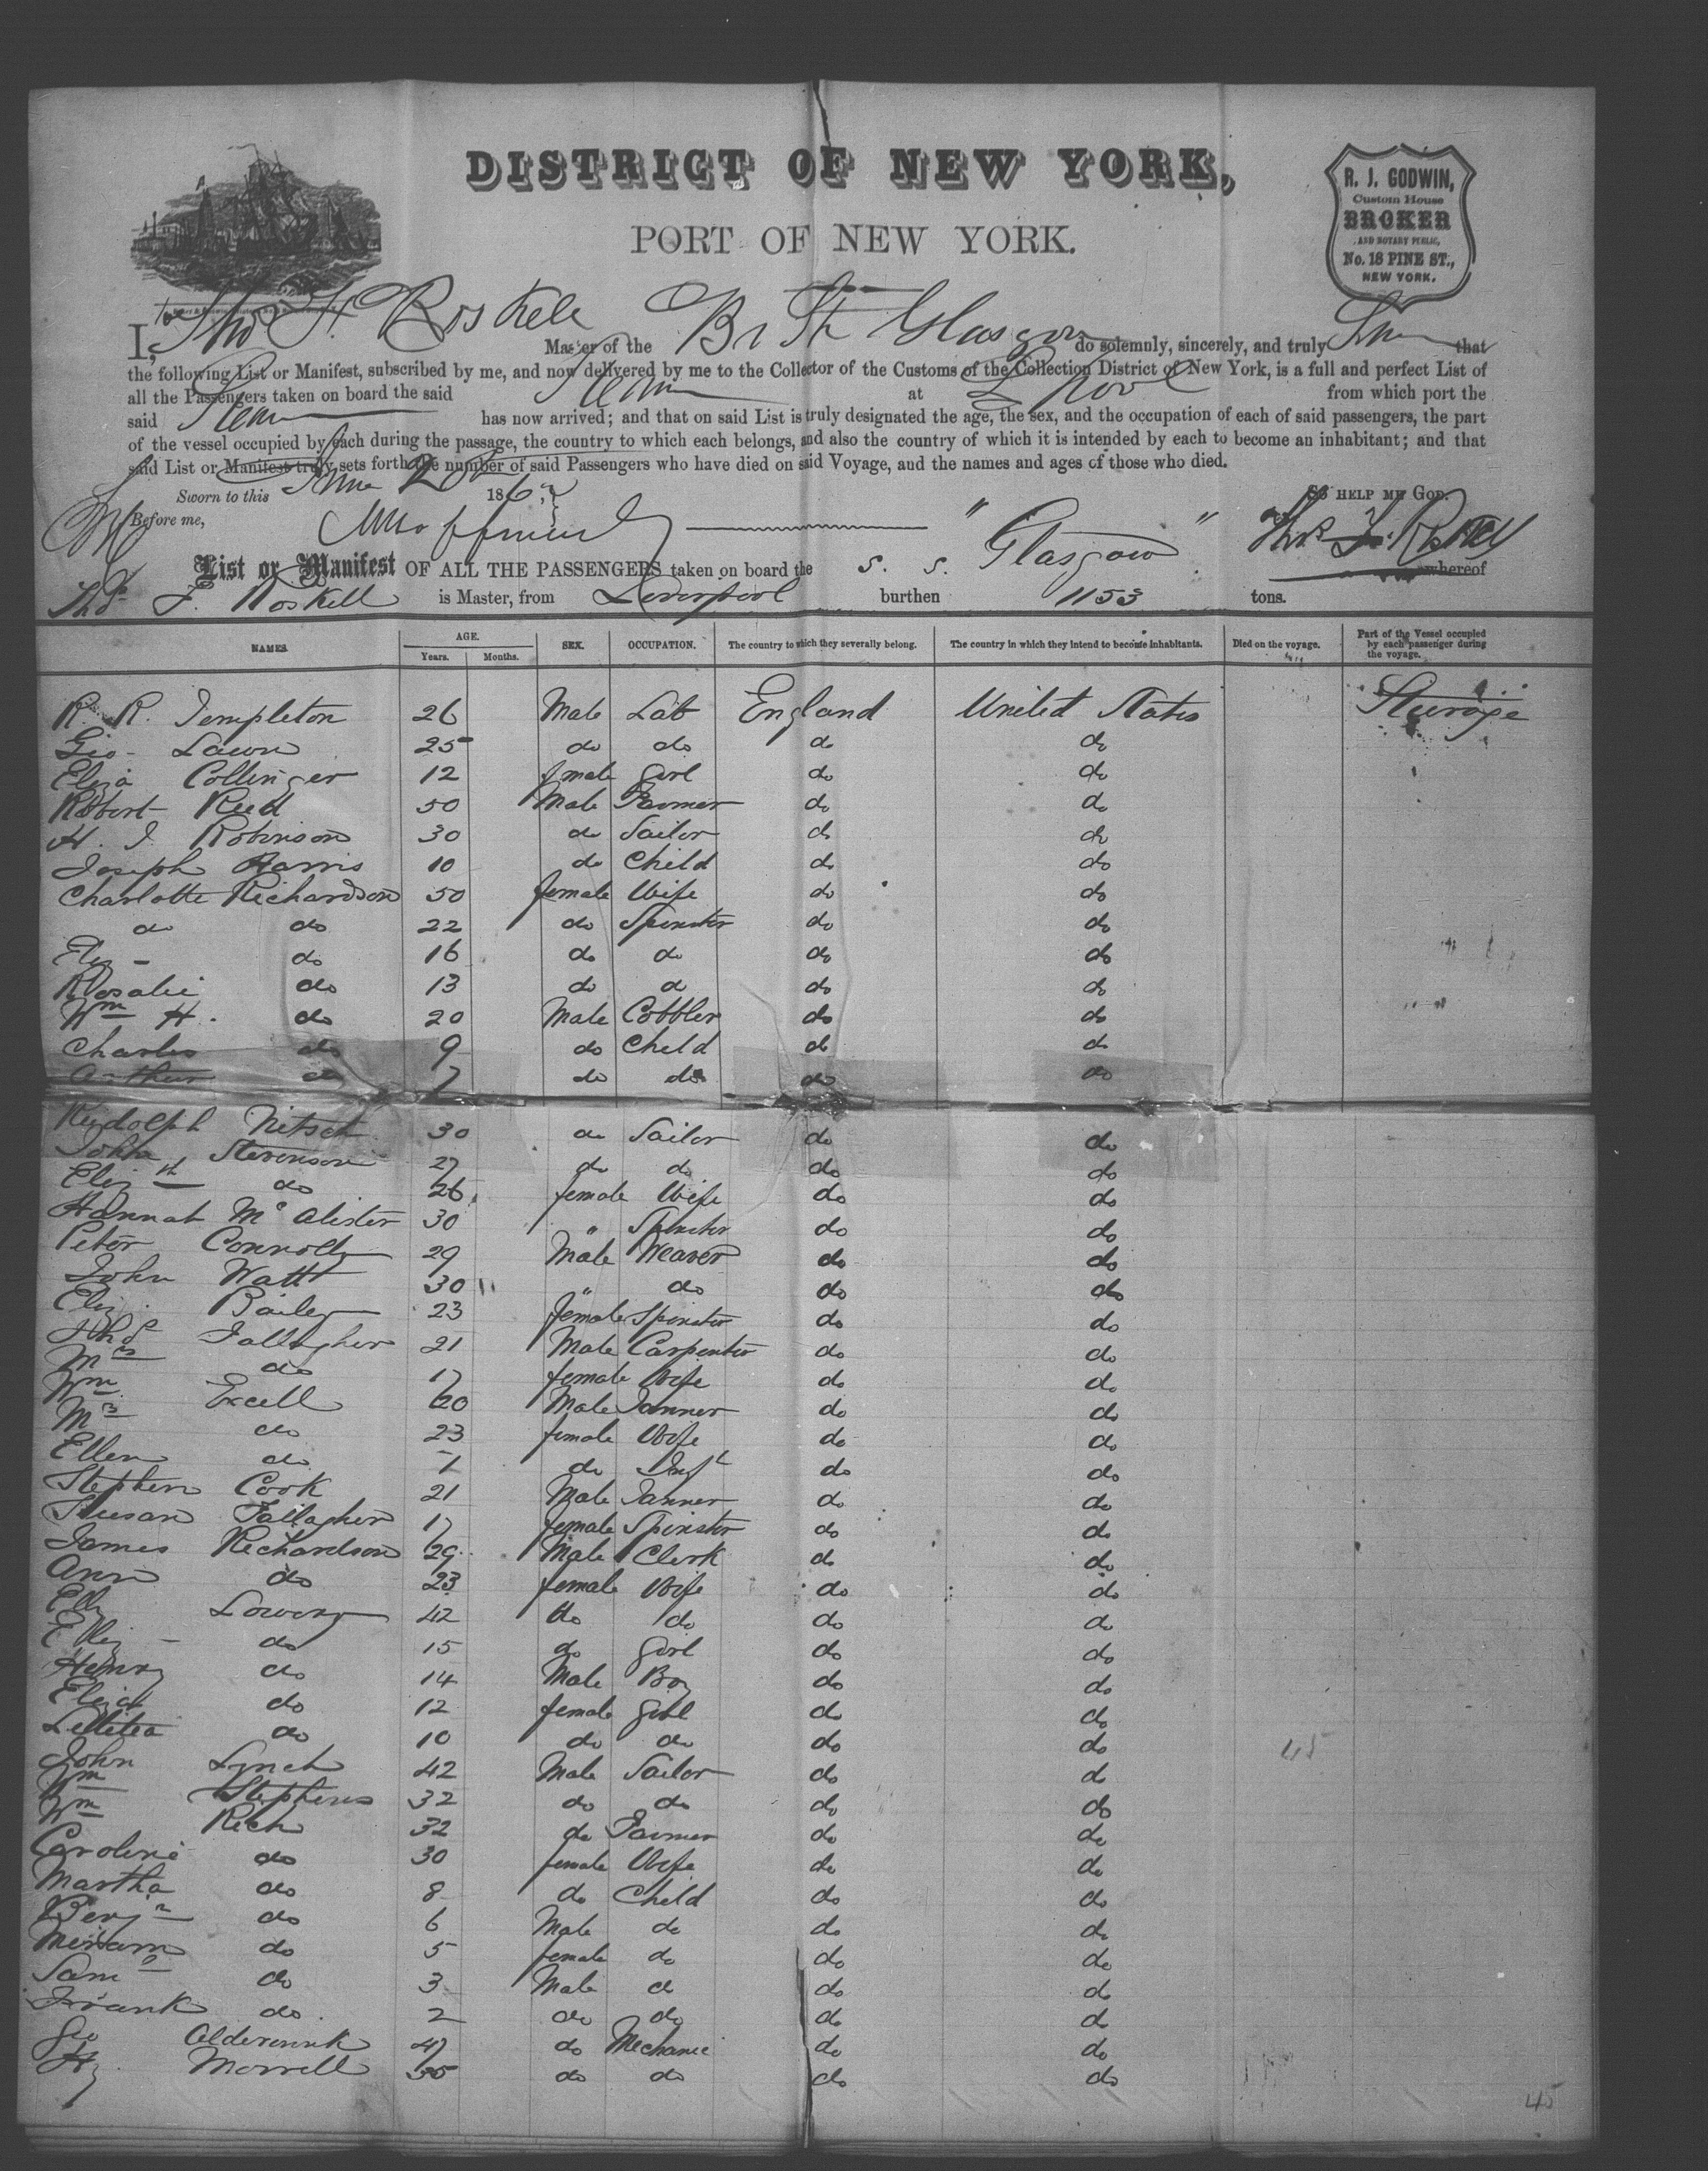 DISTRICT OF NEW YORK,
PORT OF NEW YORK.
R. J. GODWIN,
Custom House
BROKER
AND NOTARY PUBLIC,
No. 18 PINE ST.,
NEW YORK.
I, Master of the Br Str Glasgow do solemnly, sincerely, and truly that
the following List or Manifest, subscribed by me, and now delivered by me to the Collector of the Customs of the Collection District of New York, is a full and perfect List of
all the Passengers taken on board the said at L'pool from which port the
said has now arrived; and that on said List is truly designated the age, the sex, and the occupation of each of said passengers, the part
of the vessel occupied by each during the passage, the country to which each belongs, and also the country of which it is intended by each to become an inhabitant; and that
said List or Manifest truly sets forth the number of said Passengers who have died on said Voyage, and the names and ages of those who died.
Sworn to this June 186 SO HELP ME GOD.
Before me,
List or Manifest OF ALL THE PASSENGERS taken on board the S. S. "Glasgow" whereof
Thos F. Roskell is Master, from Liverpool burthen 1153 tons.
NAMES. AGE. Years. Months. SEX. OCCUPATION. The country to which they severally belong. The country in which they intend to become inhabitants. Died on the voyage. Part of the Vessel occupied by each passenger during the voyage.
R. R. Templeton 26 Male Lab England United States Steerage
Geo Lawn 25 do do do do
Eliza Collinger 12 female Girl do do
Robert Reed 50 Male Farmer do do
H. J. Robinson 30 do Sailor do do
Joseph Harris 10 do Child do do
Charlotte Richardson 50 female Wife do do
do do 22 do Spinster do do
Eliz do 16 do do do do
Rosalie do 13 do do do do
Wm H. do 20 Male Cobbler do do
Charles do 9 do Child do do
Arthur do 7 do do do do
Rudolph Nitsch 30 do Sailor do do
John Stevenson 27 do do do do
Elizth do 26 female Wife do do
Hannah McAlister 30 " Spinster do do
Peter Connolly 29 Male Weaver do do
John Watt 30 " do do do
Eliz. Bailey 23 female Spinster do do
Thos Gallagher 21 Male Carpenter do do
Mrs do 17 female Wife do do
Wm Excell 20 Male Tanner do do
Mrs do 23 female Wife do do
Ellen do 1 do Inft do do
Stephen Cook 21 Male Tanner do do
Susan Gallagher 17 female Spinster do do
James Richardson 29 Male Clerk do do
Ann do 23 female Wife do do
Lowery 42 do do do do
Eliz do 15 do Girl do do
Henry do 14 Male Boy do do
Eliza do 12 female Girl do do
Letitea do 10 do do do do
45
John Lynch 42 Male Sailor do do
Wm Stephens 32 do do do do
Wm Rich 32 do Farmer do do
Caroline do 30 female Wife do do
Martha do 8 do Child do do
Benjn do 6 Male do do do
Miriam do 5 female do do do
Saml do 3 Male do do do
Frank do 2 do do do do
Geo 47 do Mechanic do do
Hy Morrell 35 do do do do
45